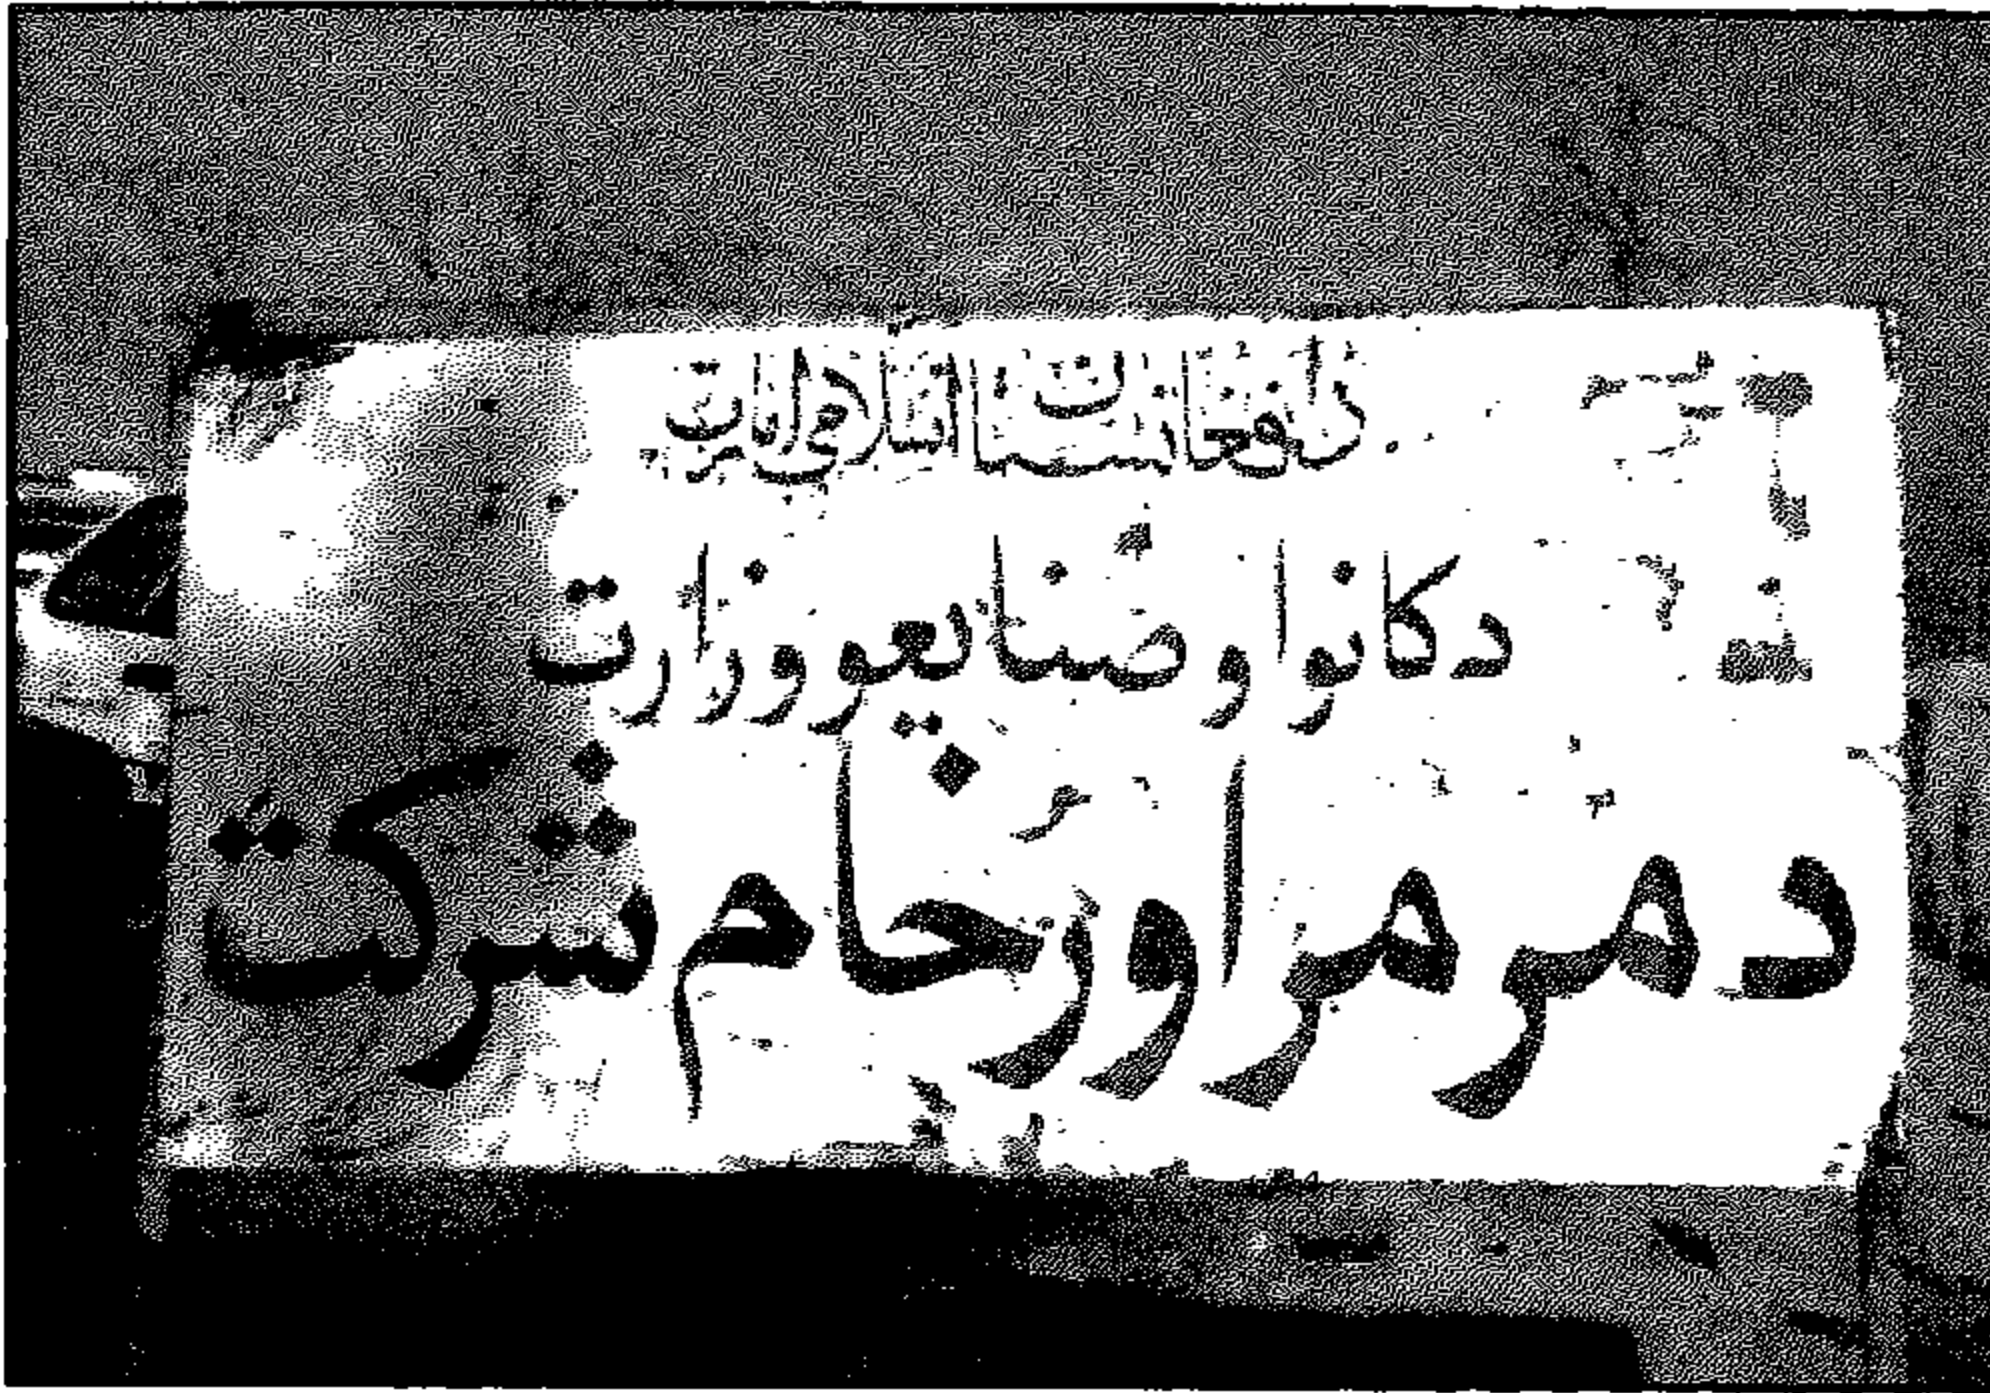 دافغانستان اسلامی امارت
دکانو او صنایعو وزارت
د مرمر او رخام شرکت